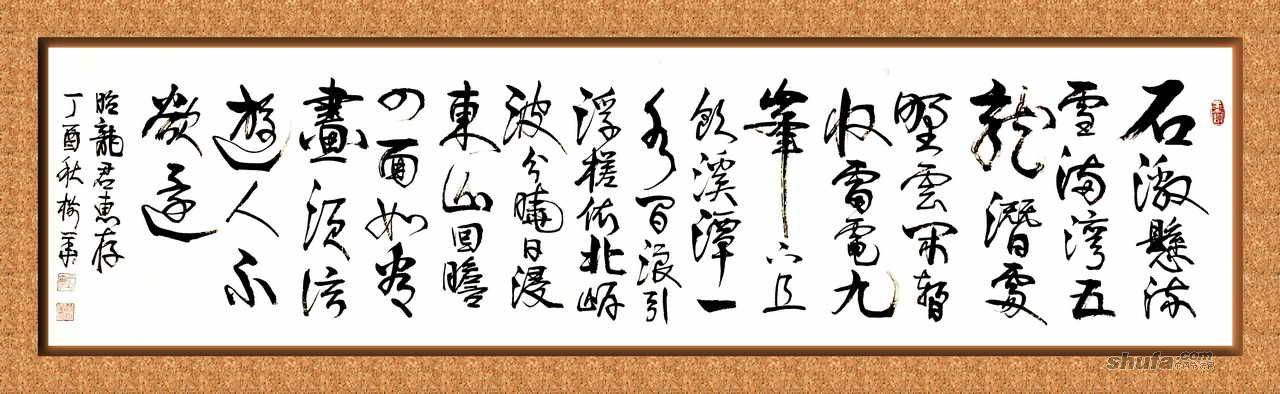 石激懸流
雪滿灣五
龍潛處
野雲閑暫
收雷電九
峯下且
飲溪潭一
水間浪引
浮槎依北岸
波分曉日浸
東山回瞻
四面如看
畫須信
遊人不
欲還
昭龍君惠存
丁酉秋
shufa.com